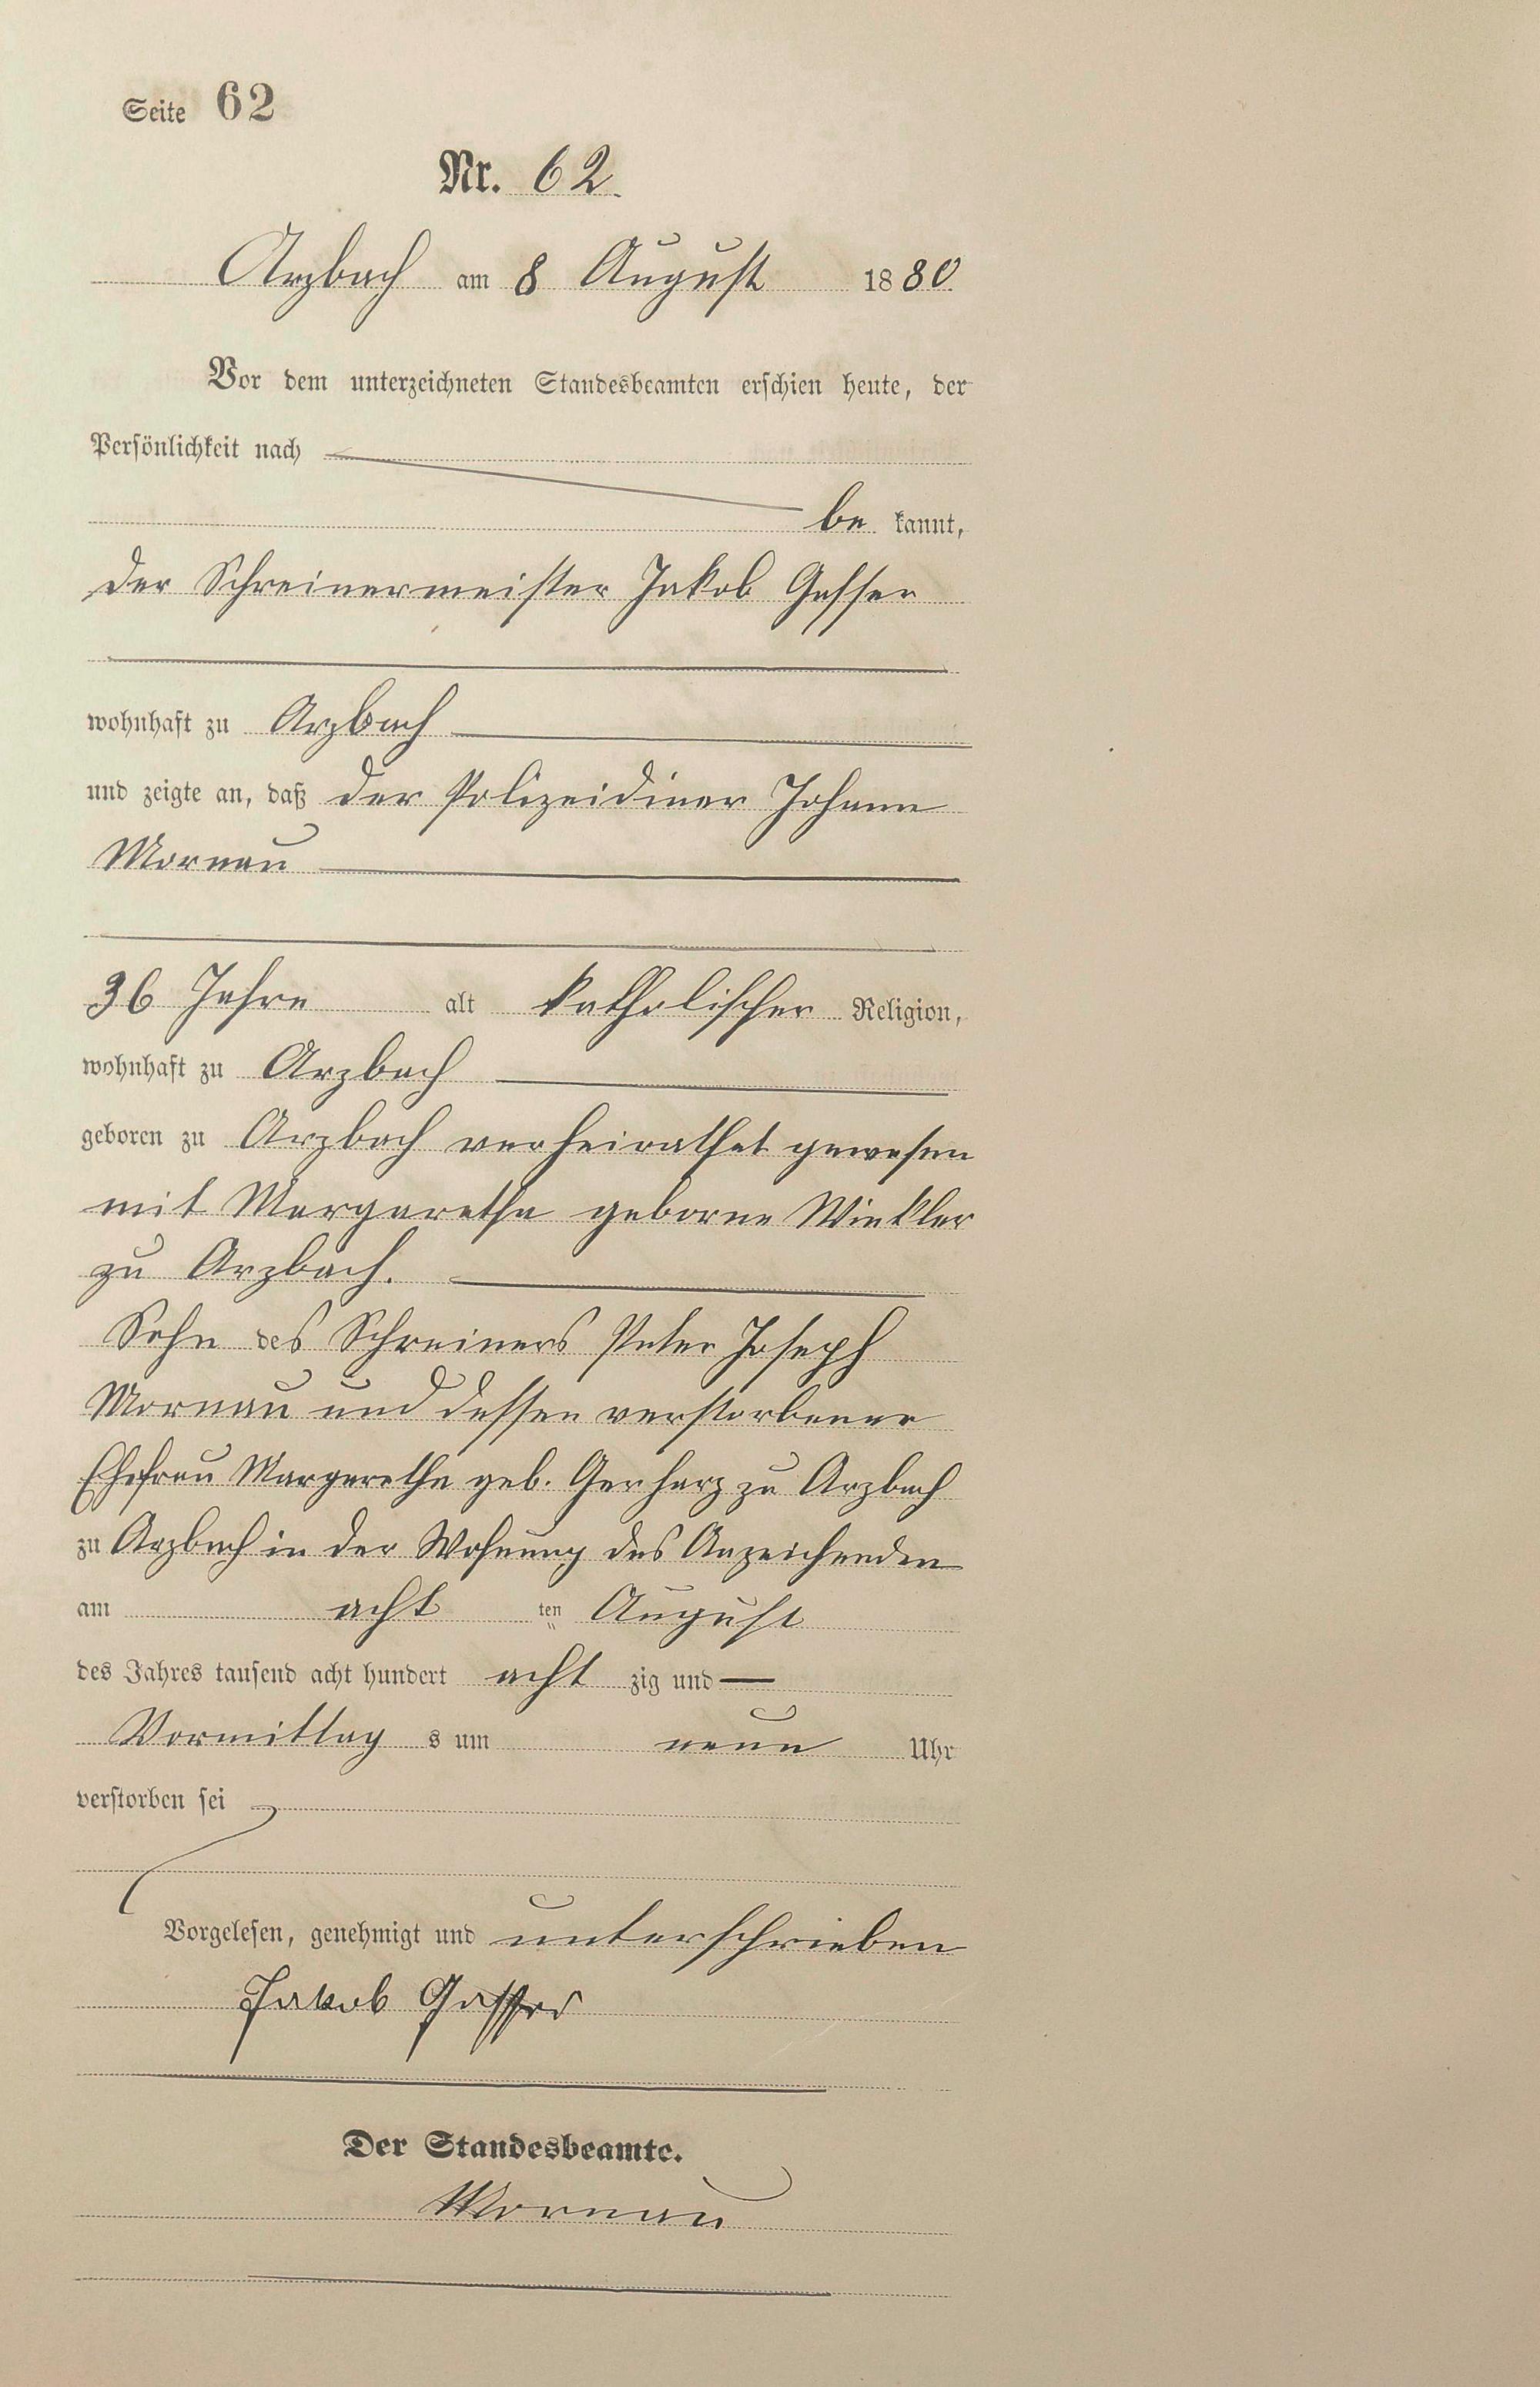 Seite 62
Nr. 62.
Arzbach am 8 August 1880.
Vor dem unterzeichneten Standesbeamten erschien heute, der
Persönlichkeit nach
be kannt,
der Schreinermeister Jakob Gasser
wohnhaft zu Arzbach
und zeigte an, daß der Polizeidiner Johann
Mornau
36 Jahre alt katholischer Religion,
wohnhaft zu Arzbach
geboren zu Arzbach verheirathet gewesen
mit Margaretha geborne Winkler
zu Arzbach.
Sohn des Schreiners Peter Joseph
Mornau und dessen verstorbener
Ehefrau Margarethe geb. Gerharz zu Arzbach
zu Arzbach in der Wohnung des Anzeichenden
am acht ten August
des Jahres tausend acht hundert acht zig und
Vormittag s um neun Uhr
verstorben sei
Vorgelesen, genehmigt und unterschrieben
Jakob Gasser
Der Standesbeamte.
Mornau